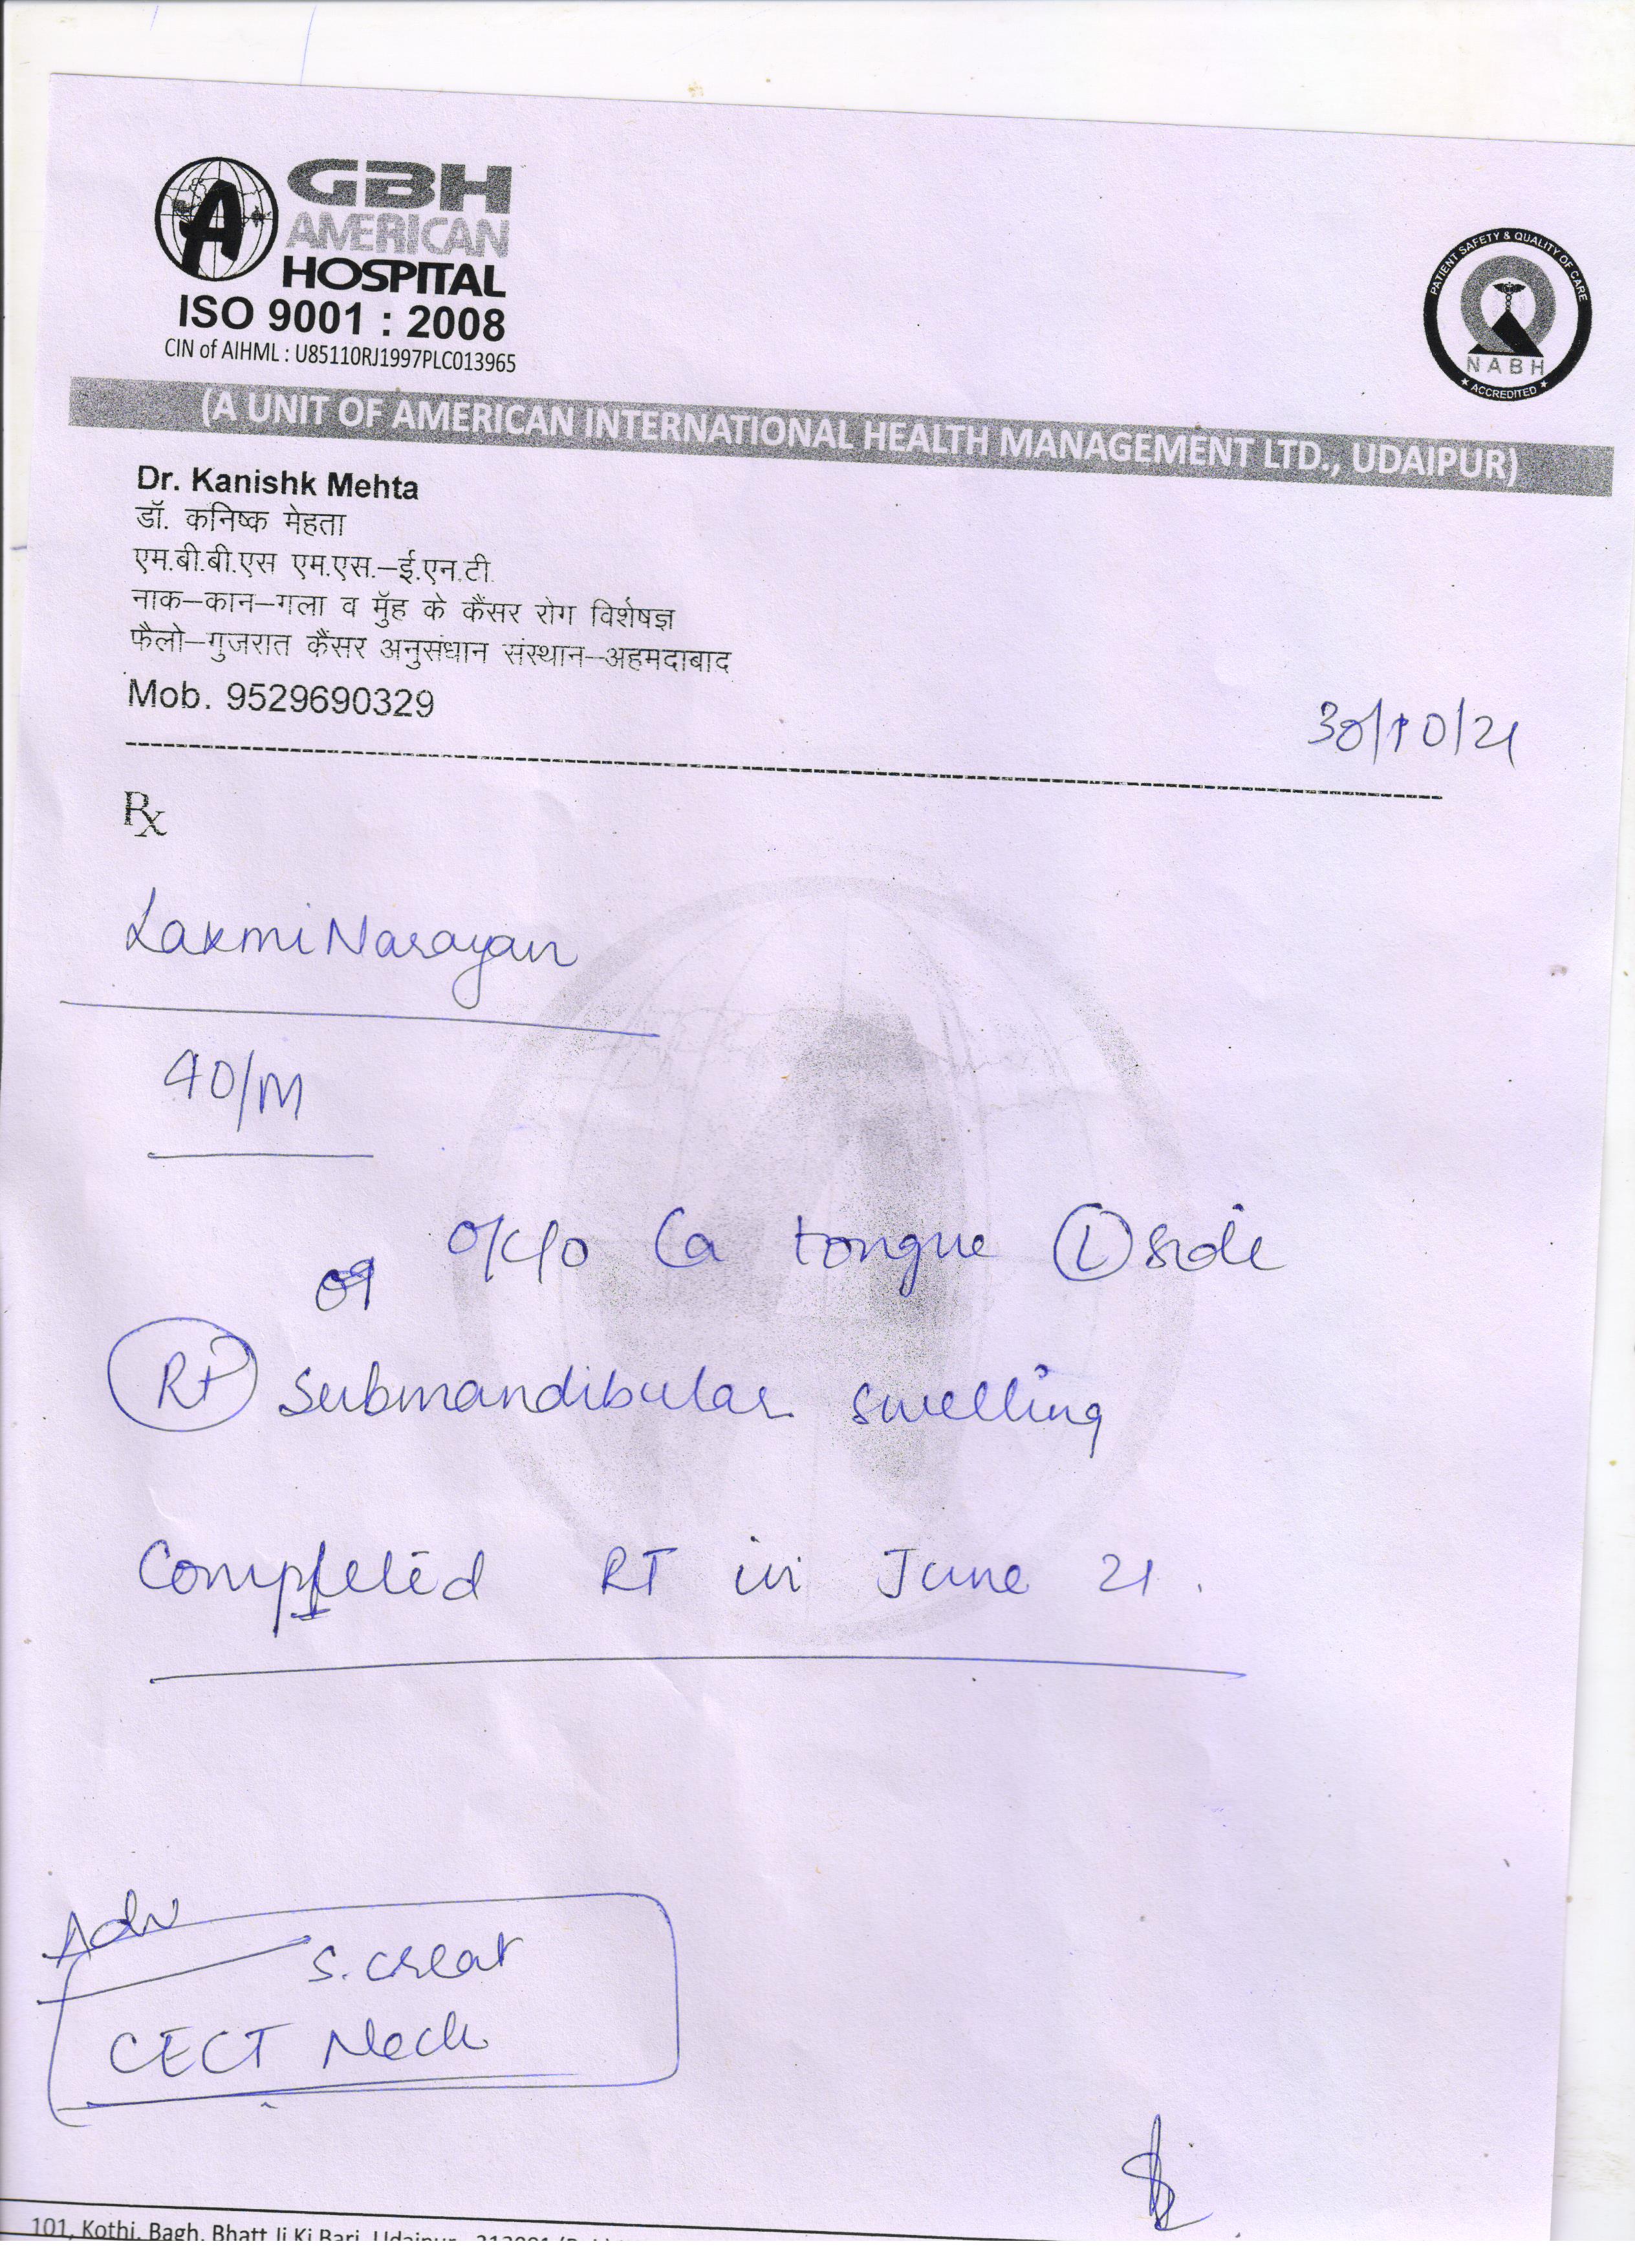 GBH
AMERICAN
HOSPITAL
ISO 9001 : 2008
CIN of AIHML : U85110RJ1997PLC013965
PATIENT SAFETY & QUALITY OF CARE
NABH
ACCREDITED
(A UNIT OF AMERICAN INTERNATIONAL HEALTH MANAGEMENT LTD., UDAIPUR)
Dr. Kanishk Mehta
डॉ. कनिष्क मेहता
एम.बी.बी.एस एम.एस.–ई.एन.टी.
नाक–कान–गला व मुँह के कैंसर रोग विशेषज्ञ
फैलो–गुजरात कैंसर अनुसंधान संस्थान–अहमदाबाद
Mob. 9529690329
30/10/21
Rx
Laxmi Narayan
40/M
o/c/o Ca tongue (L) side
Rt submandibular swelling
Completed RT in June 21.
Adv
S. creat
CECT Neck
101, Kothi, Bagh, Bhatt Ji Ki Bari, Udaipur